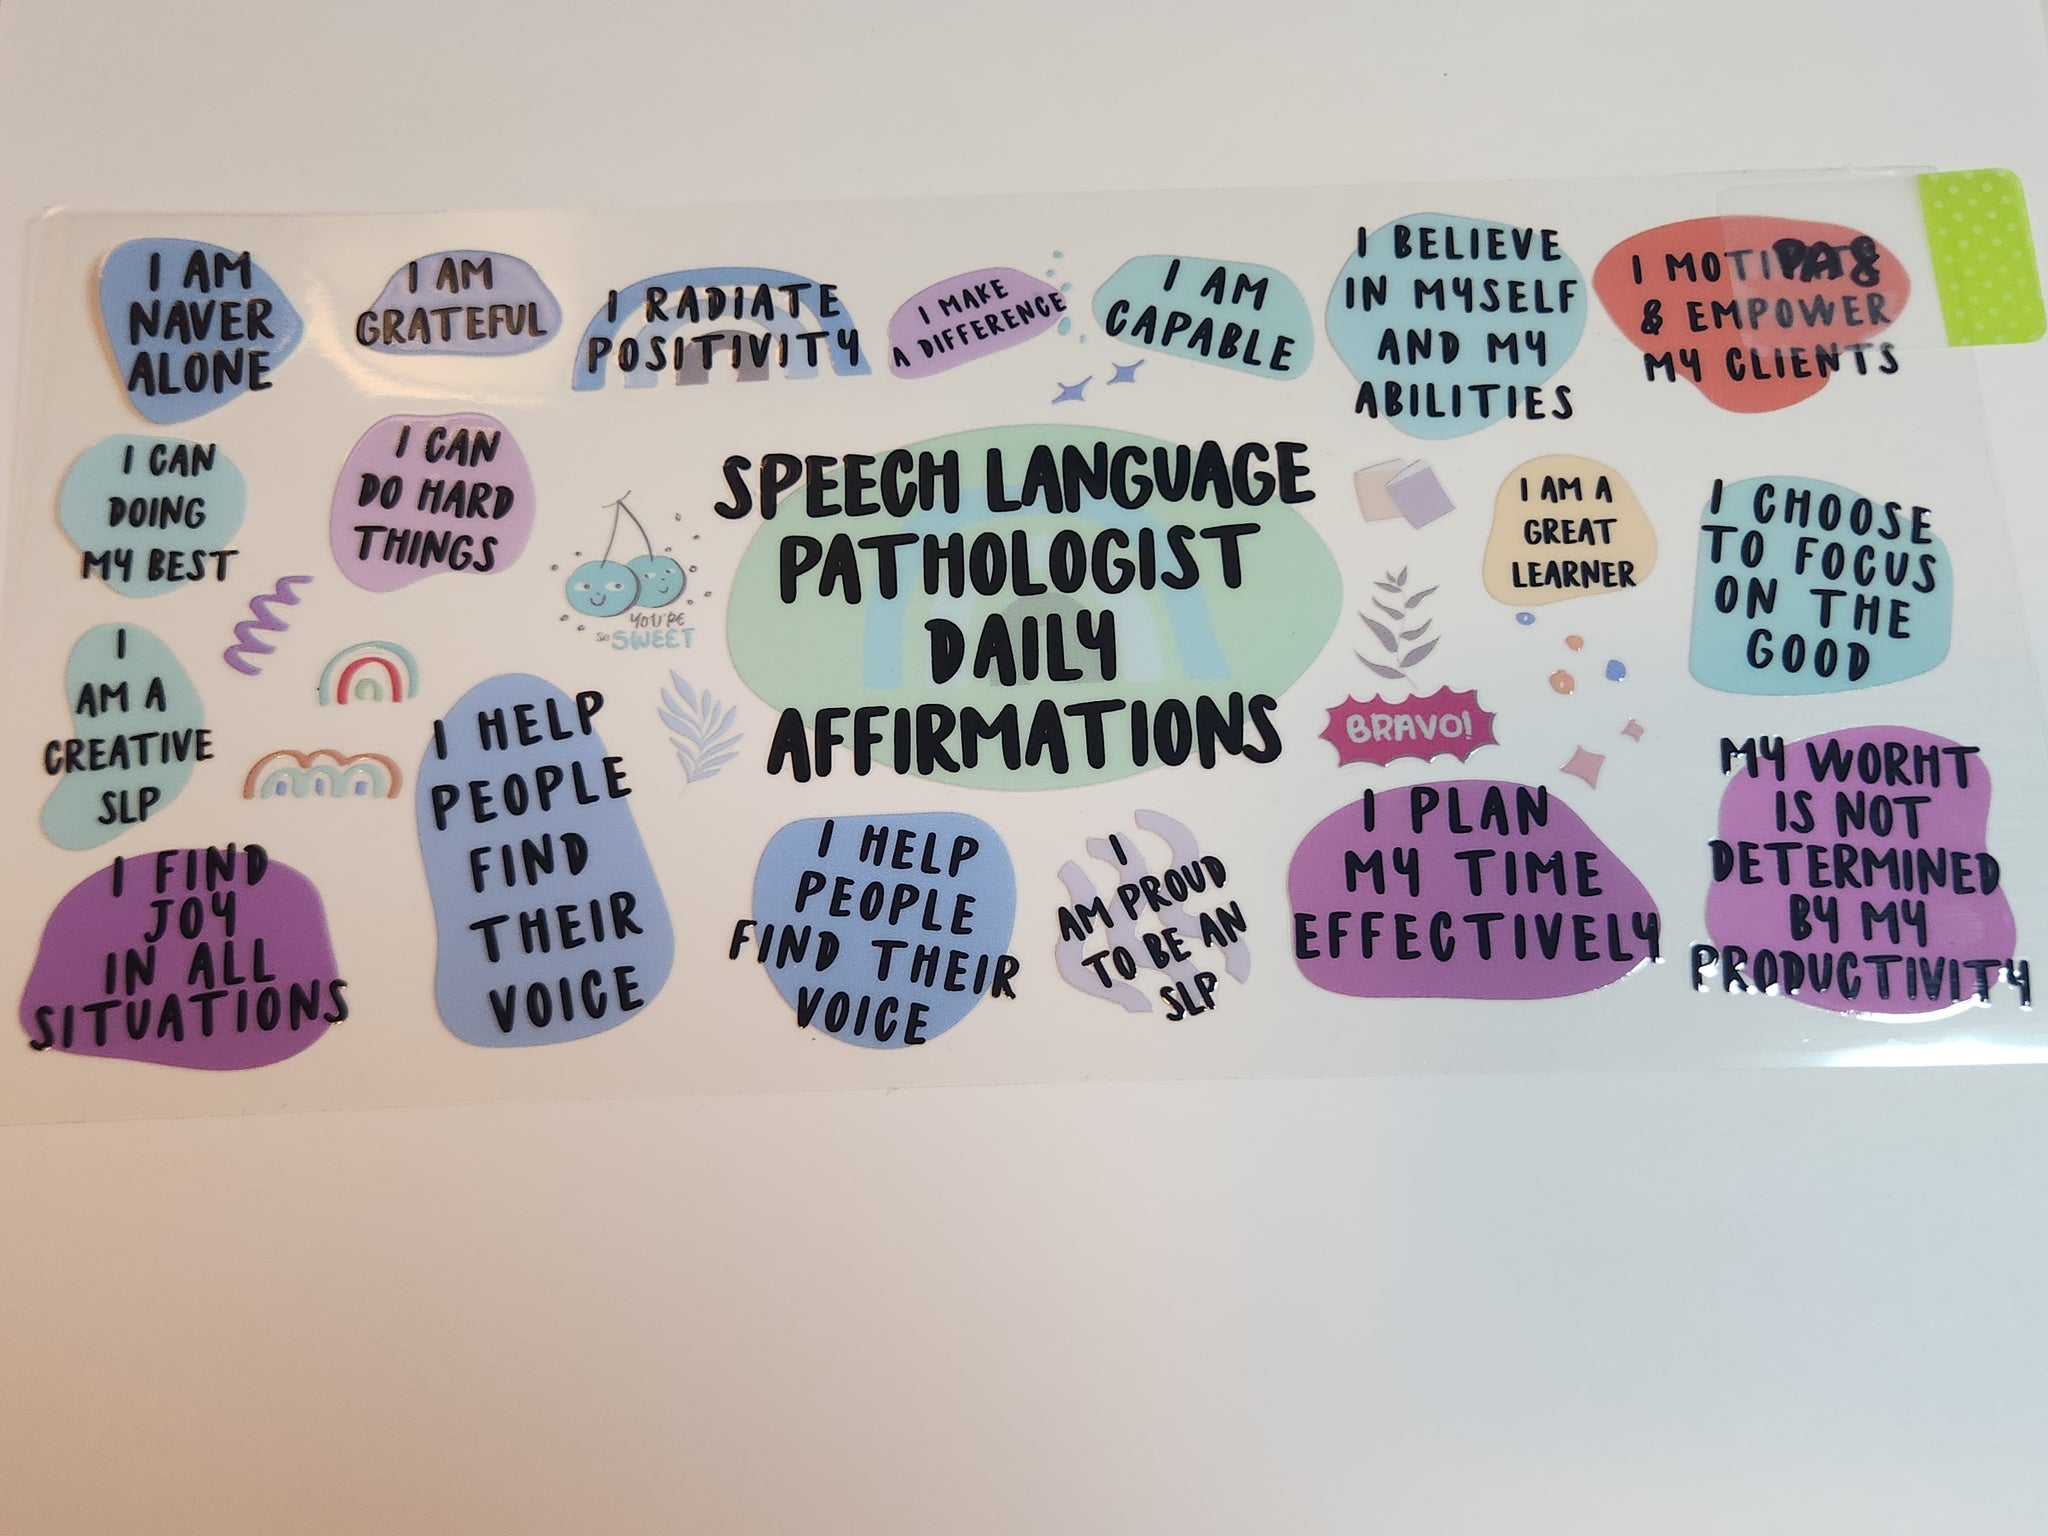 I AM
NAVER
ALONE
I AM
GRATEFUL
I RADIATE
POSITIVITY
I MAKE
A DIFFERENCE
I AM
CAPABLE
I BELIEVE
IN MYSELF
AND MY
ABILITIES
I
& EMPOWER
MY CLIENTS
I CAN
DOING
MY BEST
I CAN
DO HARD
THINGS
YOU'RE
SO SWEET
SPEECH LANGUAGE
PATHOLOGIST
DAILY
AFFIRMATIONS
I AM A
GREAT
LEARNER
I CHOOSE
TO FOCUS
ON THE
GOOD
I
AM A
CREATIVE
SLP
BRAVO!
I FIND
JOY
IN ALL
SITUATIONS
I HELP
PEOPLE
FIND
THEIR
VOICE
I HELP
PEOPLE
FIND THEIR
VOICE
I
AM PROUD
TO BE AN
SLP
I PLAN
MY TIME
EFFECTIVELY
MY WORHT
IS NOT
DETERMINED
BY MY
PRODUCTIVITY